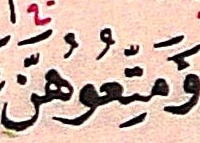 وَمَتِّعُوهُنَّ